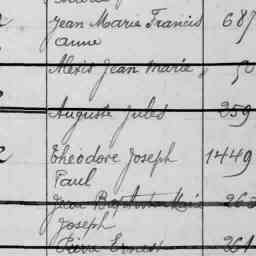 Jean Marie Francis 687
Anne
Alexis Jean Marie
Auguste Jules 259
Théodore Joseph 1449
Paul
Jean Baptiste Marie 260
Joseph
Pierre Ernest 261